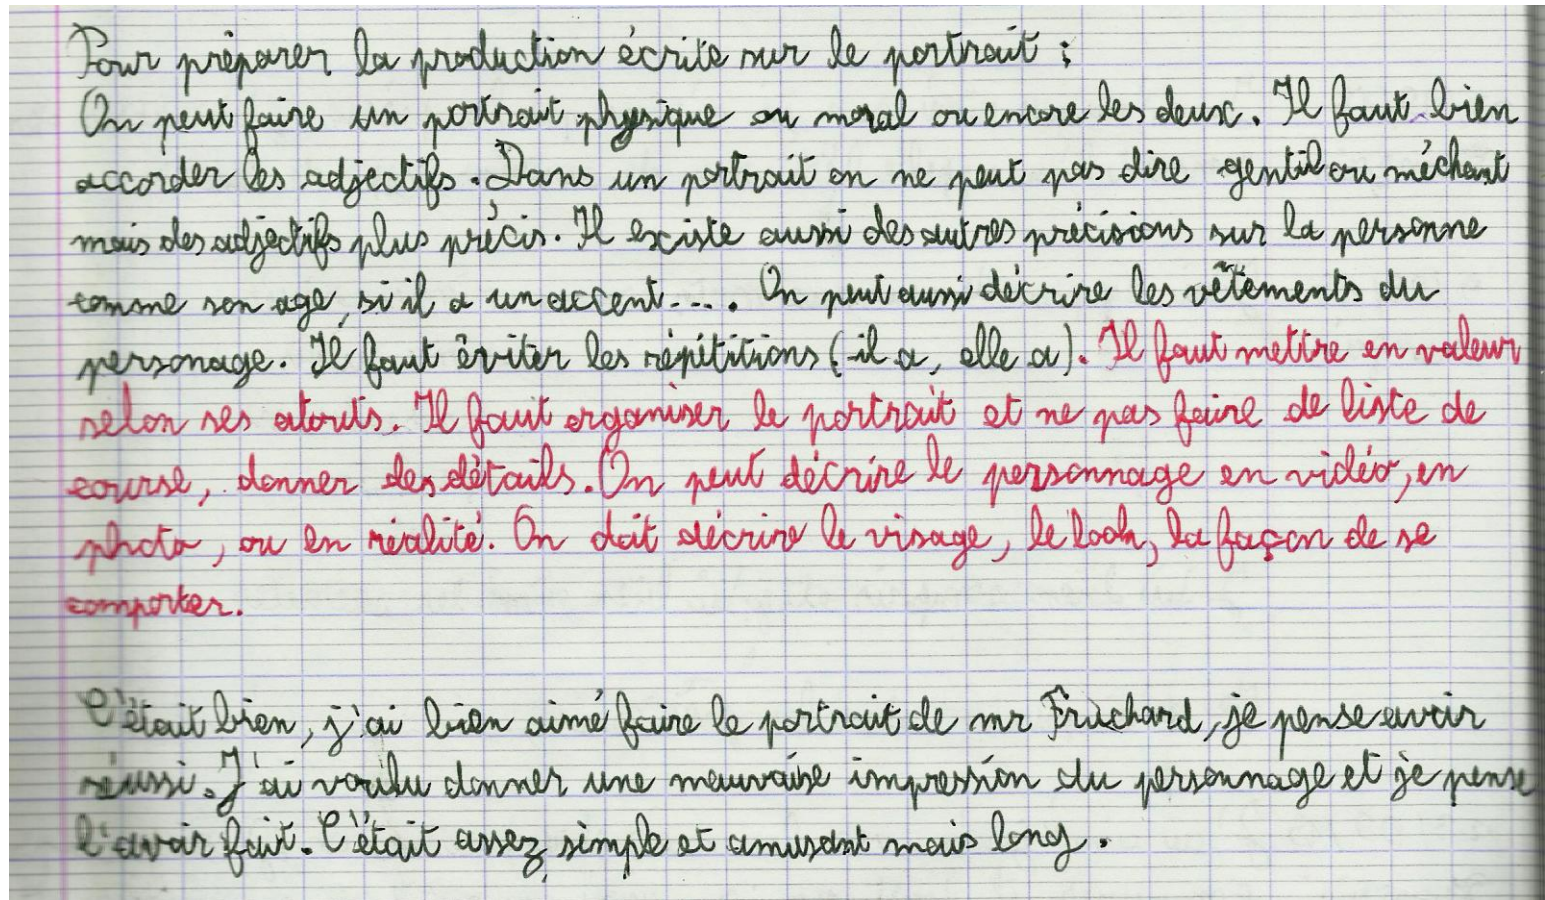 Pour préparer la production écrite sur le portrait :
On peut faire un portrait physique ou moral ou encore les deux. Il faut bien
accorder les adjectifs. Dans un portrait on ne peut pas dire gentil ou méchant
mais des adjectifs plus précis. Il existe aussi des autres précisions sur la personne
comme son age, si il a un accent.... On peut aussi décrire les vêtements du
personage. Il faut éviter les répétitions (il a, elle a). Il faut mettre en valeur
selon ses atouts. Il faut organiser le portrait et ne pas faire de liste de
course, donner des détails. On peut décrire le personnage en vidéo, en
photo, ou en réalité. On doit décrire le visage, le look, la façon de se
comporter.
C'était bien, j'ai bien aimé faire le portrait de mr Fruchard, je pense avoir
réussi. J'ai voulu donner une mauvaise impression du personnage et je pense
l'avoir fait. C'était assez simple et amusant mais long.